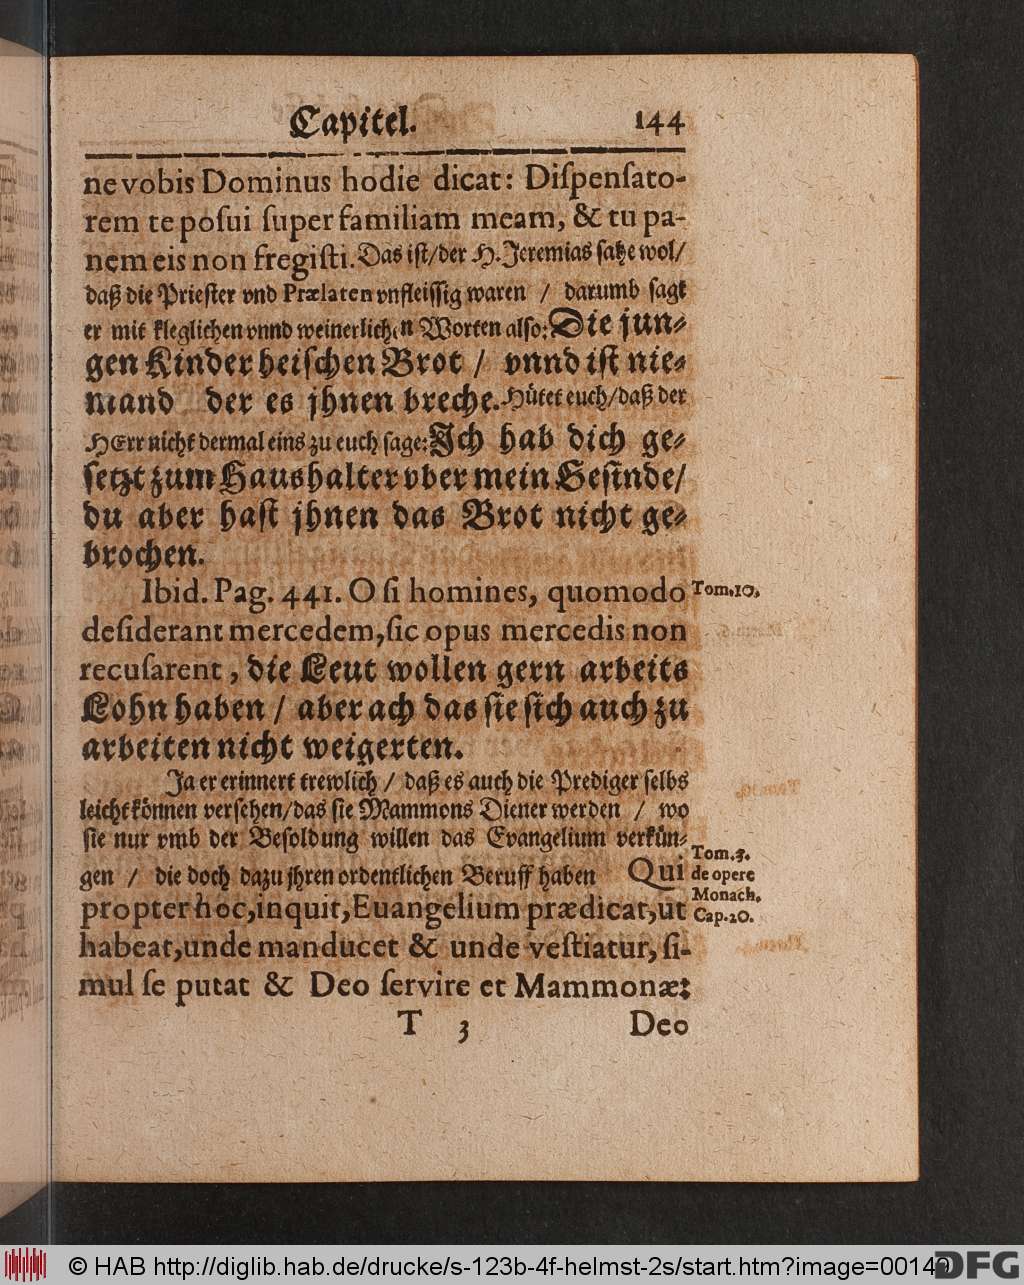 Capitel. 144
ne vobis Dominus hodie dicat: Diſpenſato-
rem te poſui ſuper familiam meam, & tu pa-
nem eis non fregiſti. Das iſt/der H. Jeremias ſahe wol/
daß die Prieſter vnd Prælaten vnfleiſſig waren / darumb ſagt
er mit kleglichen vnnd weinerlichen Worten alſo: Die jun-
gen Kinder heiſchen Brot / vnnd iſt nie-
mand der es jhnen breche. Hütet euch/daß der
HErr nicht dermal eins zu euch ſage: Ich hab dich ge-
ſetzt zum Haushalter vber mein Geſinde/
du aber haſt jhnen das Brot nicht ge-
brochen.
Ibid. Pag. 441. O ſi homines, quomodo Tom.10.
deſiderant mercedem, ſic opus mercedis non
recuſarent, die Leut wollen gern arbeits
Lohn haben / aber ach das ſie ſich auch zu
arbeiten nicht weigerten.
Ja er erinnert trewlich / daß es auch die Prediger ſelbs
leicht können verſehen/das ſie Mammons Diener werden / wo
ſie nur vmb der Beſoldung willen das Evangelium verkün-
gen / die doch dazu jhren ordentlichen Beruff haben Qui
Tom.3.
de opere
Monach.
Cap.20.
propter hoc, inquit, Euangelium prædicat, ut
habeat, unde manducet & unde veſtiatur, ſi-
mul ſe putat & Deo ſervire et Mammonæ:
T 3 Deo
© HAB http://diglib.hab.de/drucke/s-123b-4f-helmst-2s/start.htm?image=00149
DFG